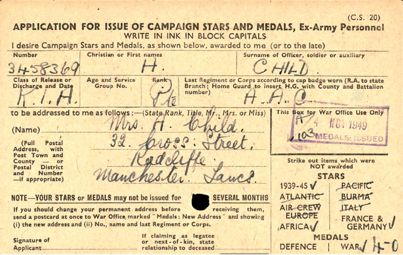 (C.S. 20)
APPLICATION FOR ISSUE OF CAMPAIGN STARS AND MEDALS, Ex-Army Personnel
WRITE IN INK IN BLOCK CAPITALS
I desire Campaign Stars and Medals, as shown below, awarded to me (or to the late)
Number Christian or First names Surname of Officer, soldier or auxiliary
3458369 H. CHILD
Class of Release or Discharge and Date Age and Service Group No. Rank Last Regiment or Corps according to cap badge worn (R.A. to state Branch; Home Guard to insert H.G. with County and Battalion number)
Pte
to be addressed to me as follows:—(State Rank, Title, Mr., Mrs. or Miss)
This Box for War Office Use Only
(Name) Mrs. H. Child.
(Full Postal Address, with Post Town and County — or Postal District and Number —if appropriate)
32, Cross Street,
Radcliffe
Manchester Lancs.
NOV 1949
103 MEDALS ISSUED
Strike out items which were NOT awarded
STARS
1939-45 PACIFIC
ATLANTIC BURMA
AIR CREW EUROPE ITALY
AFRICA FRANCE & GERMANY
MEDALS
DEFENCE WAR
NOTE—YOUR STARS or MEDALS may not be issued for SEVERAL MONTHS
If you should change your permanent address before receiving them, send a postcard at once to War Office, marked "Medals: New Address" and showing (i) the new address and (ii) No., name and last Regiment or Corps.
Signature of Applicant
If claiming as legatee or next-of-kin, state relationship to deceased